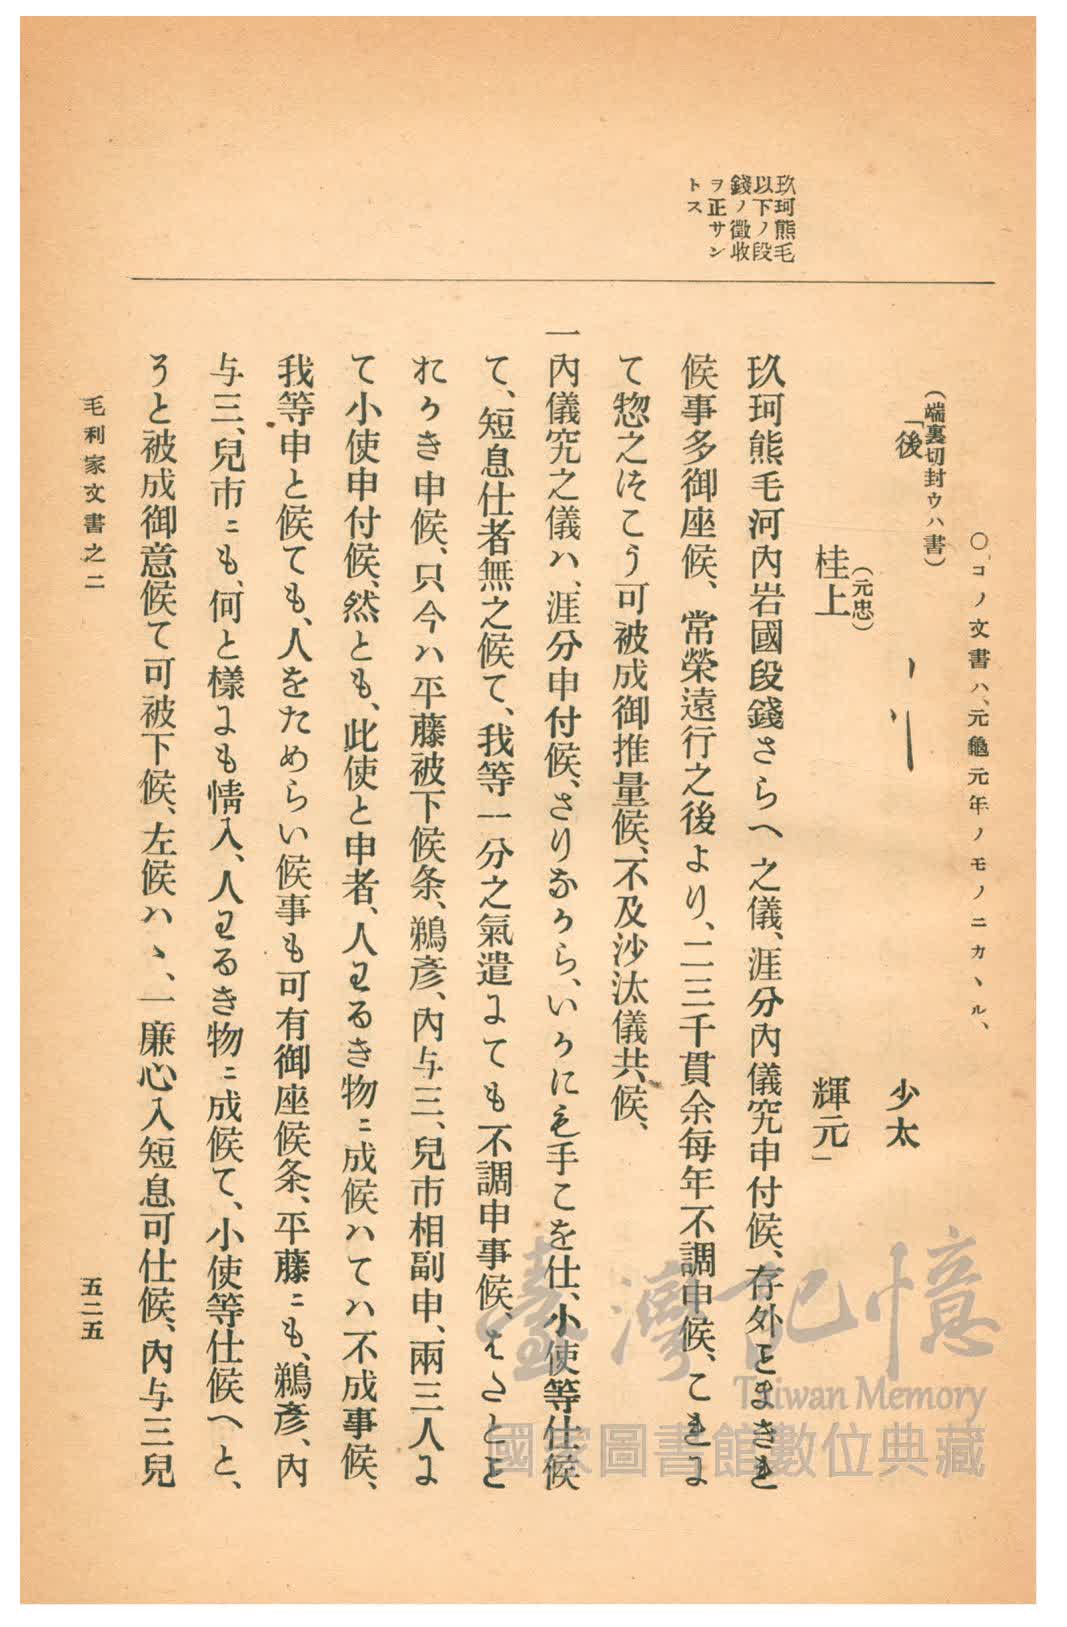 玖珂熊毛
以下ノ段
錢ノ徵收
ヲ正サン
トス
○コノ文書ハ、元龜元年ノモノニカヽル、
(端裏切封ウハ書)
「後
少太
(元忠)
桂上
輝元」
玖珂熊毛河內岩國段錢さらへ之儀、涯分內儀究申付候、存外とまきれ
候事多御座候、常榮遠行之後より、二三千貫余每年不調申候、これよ
て惣之はこう可被成御推量候、不及沙汰儀共候、
一內儀究之儀ハ、涯分申付候、さりなから、いかにも手こを仕、小使等仕候
て、短息仕者無之候て、我等一分之氣遣よても不調申事候、はたと
れかき申候、只今ハ平藤被下候条、鵜彥、內与三、兒市相副申、兩三人よ
て小使申付候、然とも、此使と申者、人わるき物ニ成候ハてハ不成事候、
我等申と候ても、人をためらい候事も可有御座候条、平藤ニも、鵜彥、內
与三、兒市ニも、何と樣よも情入、人わるき物ニ成候て、小使等仕候へと、
うと被成御意候て可被下候、左候ハヽ、一廉心入短息可仕候、內与三兒
毛利家文書之二
五二五
臺灣記憶
Taiwan Memory
國家圖書館數位典藏